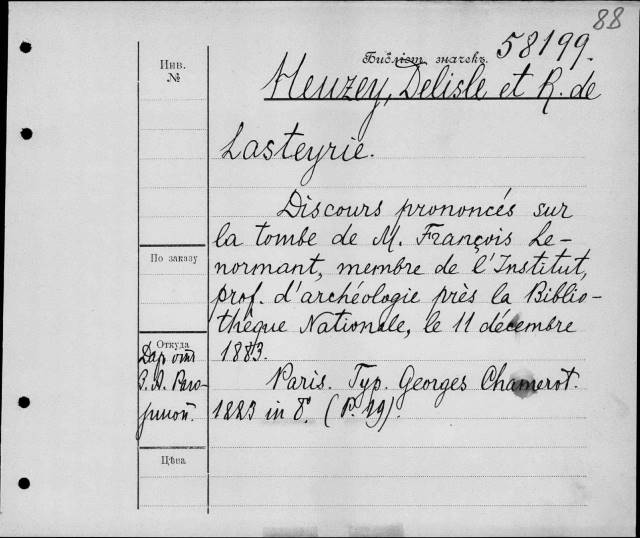 88
Инв.
№
Библіот. значекъ. 58199.
Heuzey, Delisle et R. de
Lasteyrie.
Discours prononcés sur
la tombe de M. François Le-
normant, membre de l'Institut,
prof. d'archéologie près la Biblio-
thèque Nationale, le 11 décembre
1883.
Paris. Typ. Georges Chamerot.
1883 in 8°. (P. 19).
По заказу
Откуда
Даръ отъ
Цѣна